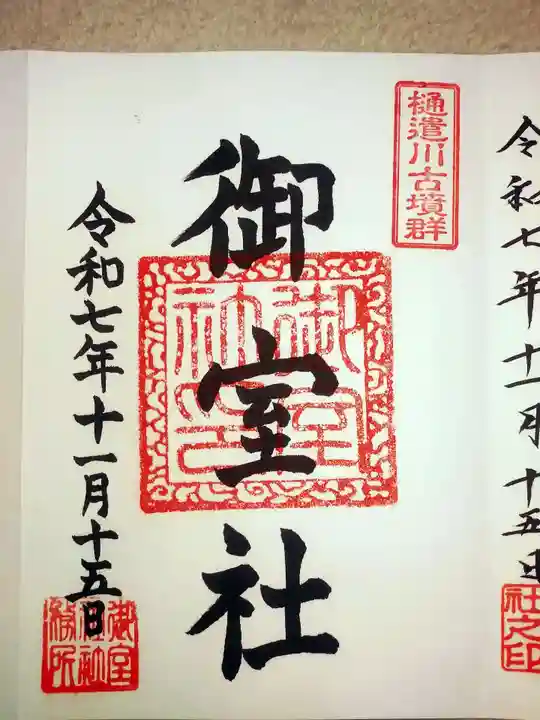 令和七年十一月十五日
社之印
樋遣川古墳群
御室社
御室社印
令和七年十一月十五日
御室社社務所